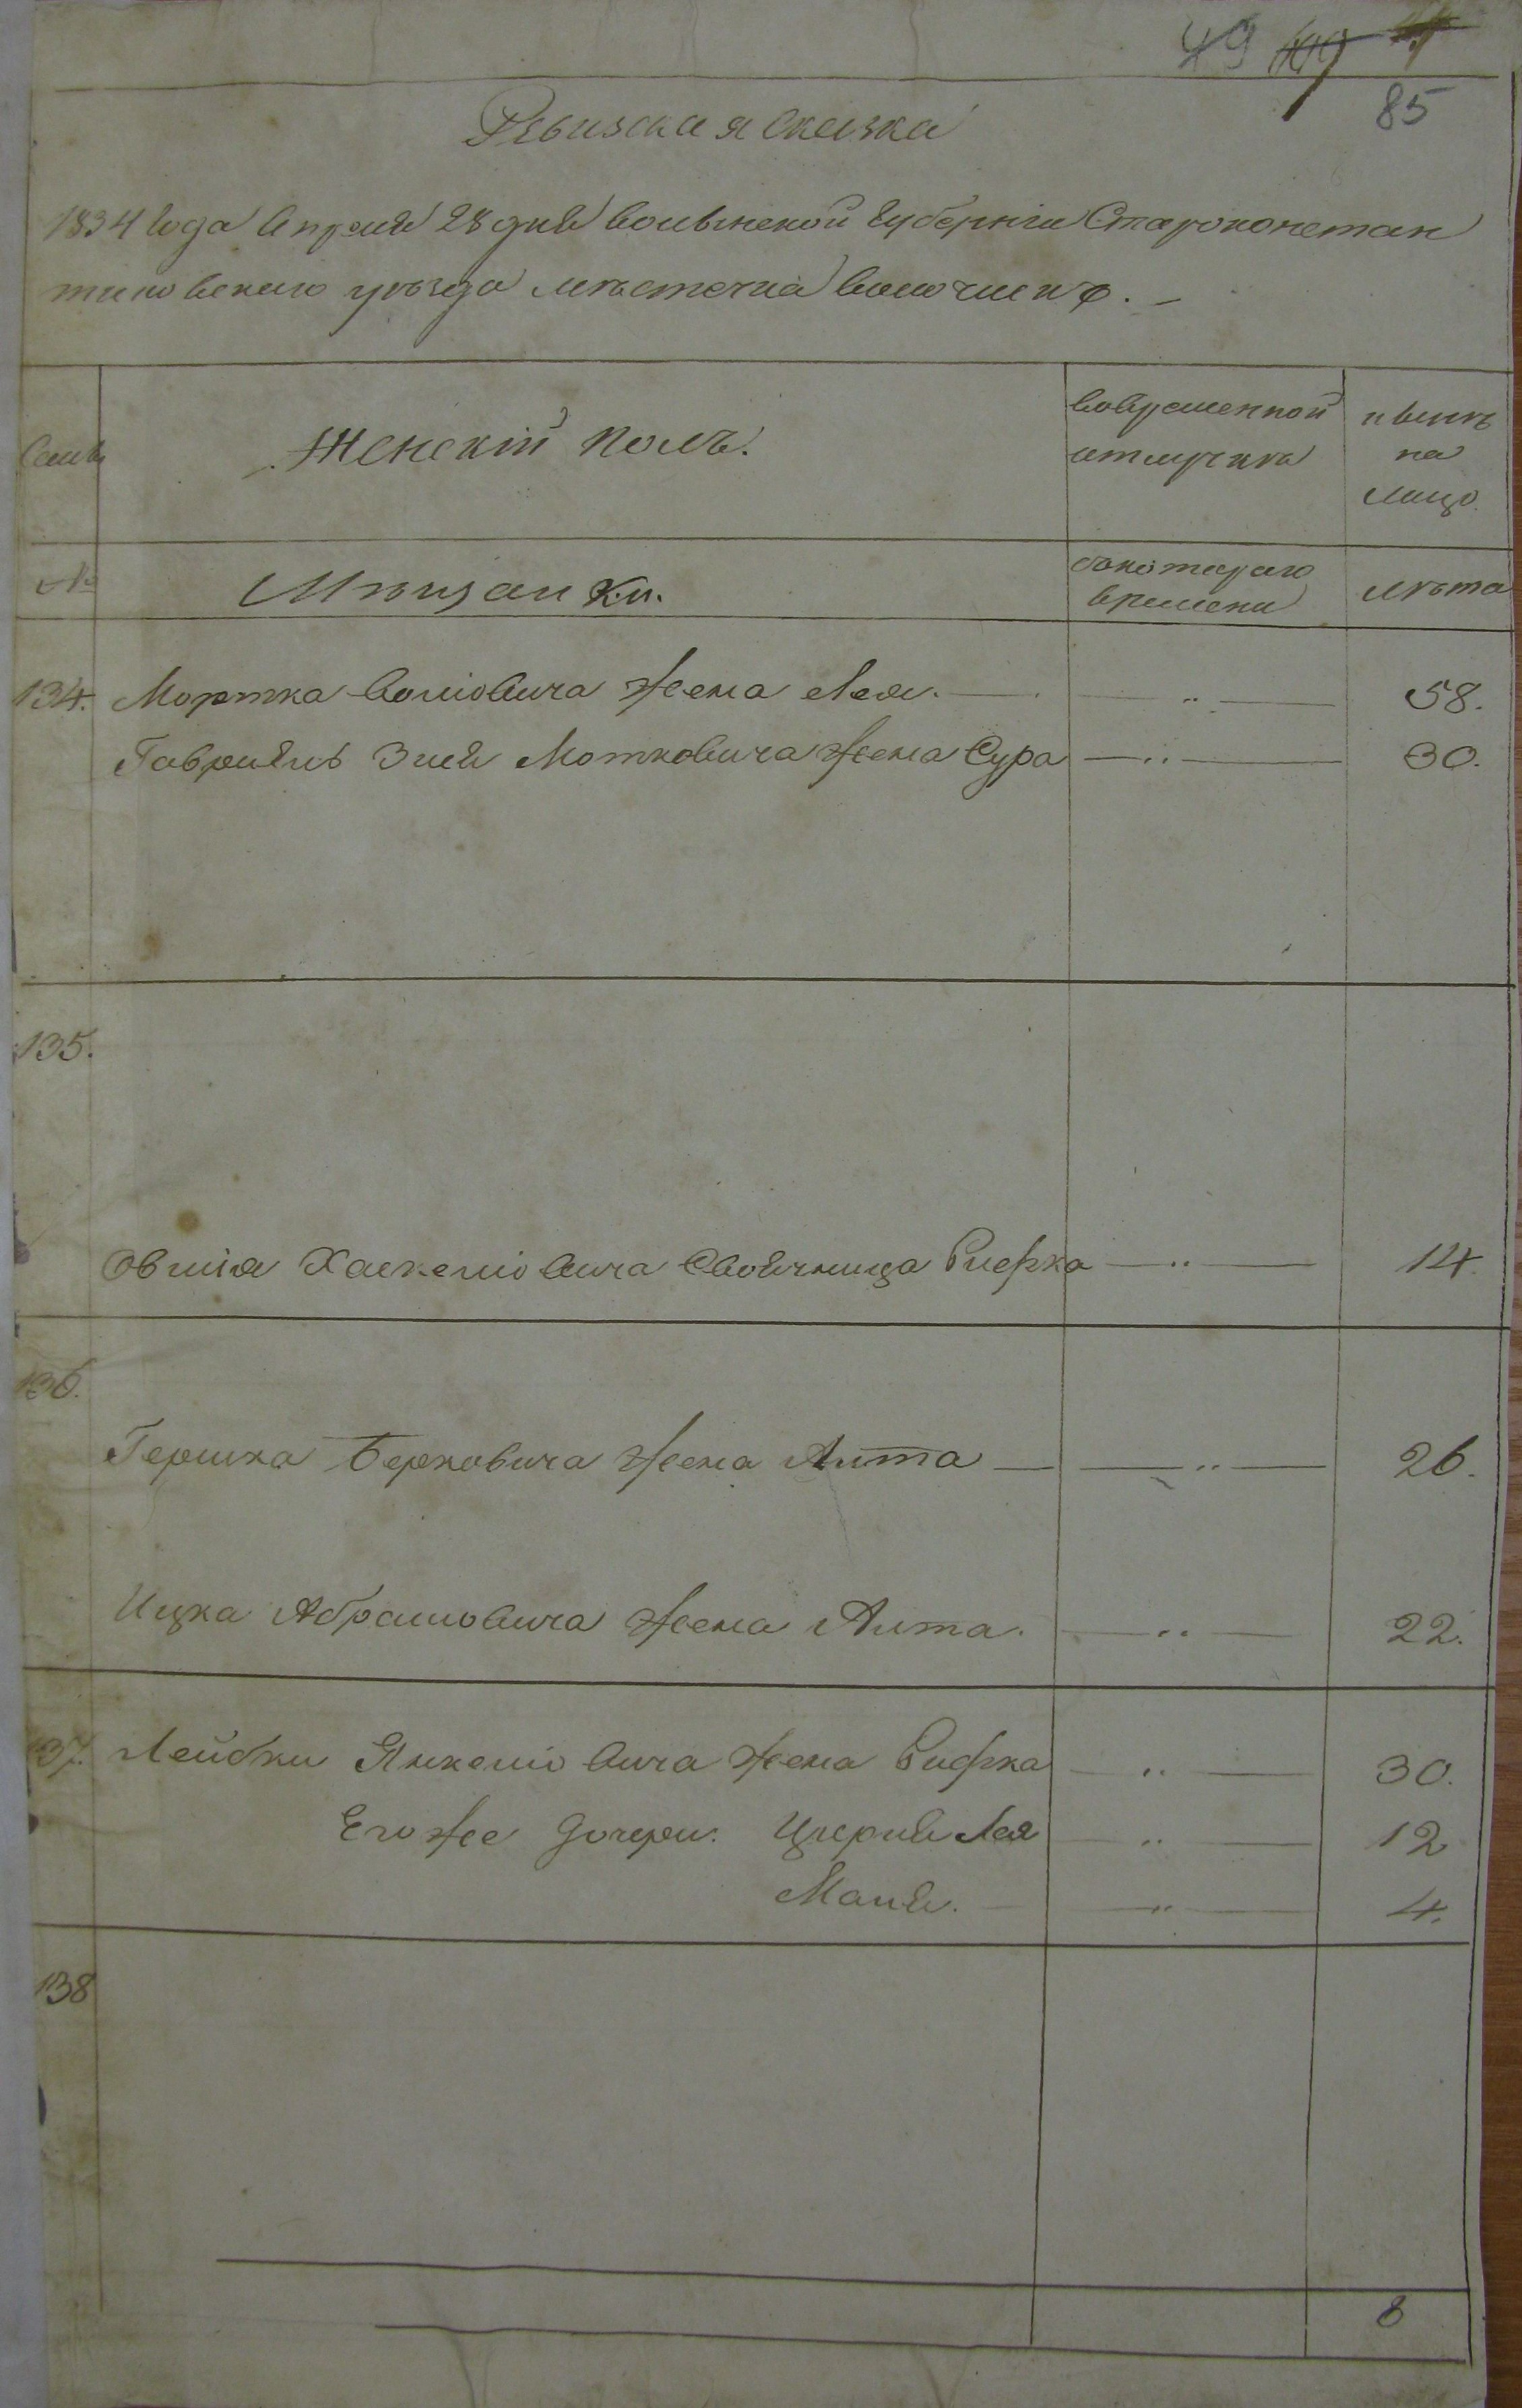 49
85
Ревизская Сказка
1834 Года Апреля 28 дня Волынской Губернiи Староконстан
тиновскаго уѣзда мѣстечка Волочискъ. —
Семьи
Женскiй Полъ.
Вовременной
отлучкѣ
нынѣ
на
лицо.
№
Мѣщанки.
Сокотораго
времени
лѣта
134. Мортка Волiовича жена Лея. — „ — 58.
Гавриель Зися Мотковича жена Сура — „ — 30.
135.
Овшiя Хаскелiовича Своячница Рифка — „ — 14.
136.
Гершка Берковича жена Аита — „ — 26.
Ицка Абрамовича жена Аита. — „ — 22.
137. Лейбки Янкелiовича жена Рифка — „ — 30.
Его же дочери: Цирля Лея — „ — 12
Маня. — „ — 4.
138
8